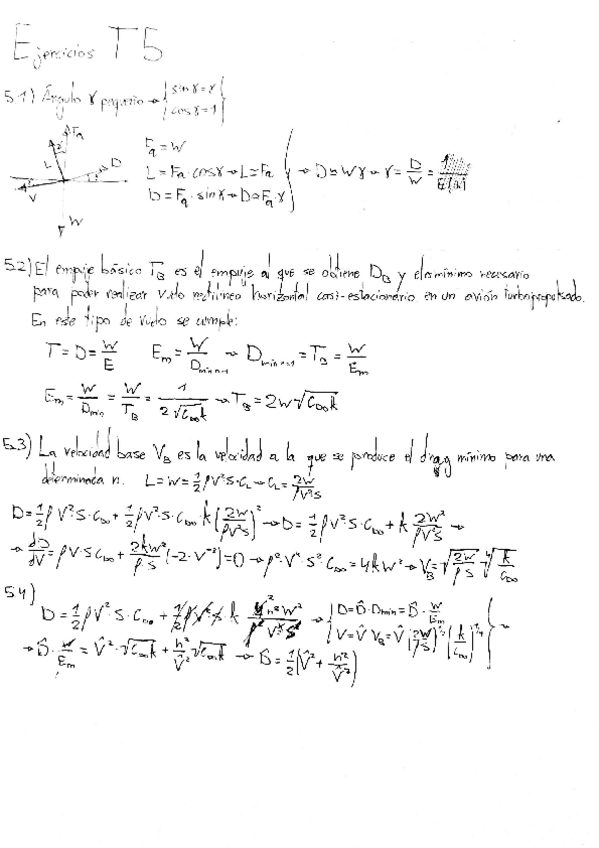 Ejercicios T5
5.1) Ángulo γ pequeño → { sin γ = γ
cos γ = 1 }
Fa
L
D
V
W
Fa = W
L = Fa · cos γ → L ≃ Fa
D = Fa · sin γ → D ≃ Fa · γ
→ D ≃ Wγ → γ = D/W =
5.2) El empuje básico T_B es el empuje al que se obtiene D_B y el mínimo necesario
para poder realizar vuelo rectilíneo horizontal casi-estacionario en un avión turbopropulsado.
En este tipo de vuelo se cumple:
T = D = W/E E_m = W/D_min n=1 → D_min n=1 = T_B = W/E_m
E_m = W/D_min = W/T_B = 1/(2√(C_D0 k)) → T_B = 2W√(C_D0 k)
5.3) La velocidad base V_B es la velocidad a la que se produce el drag mínimo para una
determinada n. L = W = 1/2 ρV²S·C_L → C_L = 2W/(ρV²S)
D = 1/2 ρV²·S·C_D0 + 1/2 ρV²·S·k (2W/(ρV²S))² → D = 1/2 ρV²·S·C_D0 + k 2W²/(ρV²S) →
→ dD/dV = ρV·S C_D0 + 2kW²/(ρ·S) (-2·V⁻³) = 0 → ρ²·V⁴·S² C_D0 = 4kW² → V_B = √(2W/(ρS)) ⁴√(k/C_D0)
5.4)
D = 1/2 ρV²·S·C_D0 + 1/2 ρV²S · k 4n²W²/(ρ²V⁴S²) → { D = D̂·D_min = D̂·W/E_m
V = V̂ V_B = V̂ (2W/(ρS))^1/2 (k/C_D0)^1/4 } →
→ D̂·W/E_m = V̂²·√(C_D0 k) + n²/V̂² √(C_D0 k) → D̂ = 1/2 (V̂² + n²/V̂²)